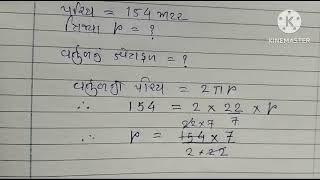 પરિઘ = 154 મીટર
ત્રિજ્યા r = ?
વર્તુળનું ક્ષેત્રફળ = ?
વર્તુળનો પરિઘ = 2πr
∴ 154 = 2 × 22/7 × r
22 × 7
∴ r = 154 × 7 / 2 × 22
KINEMASTER